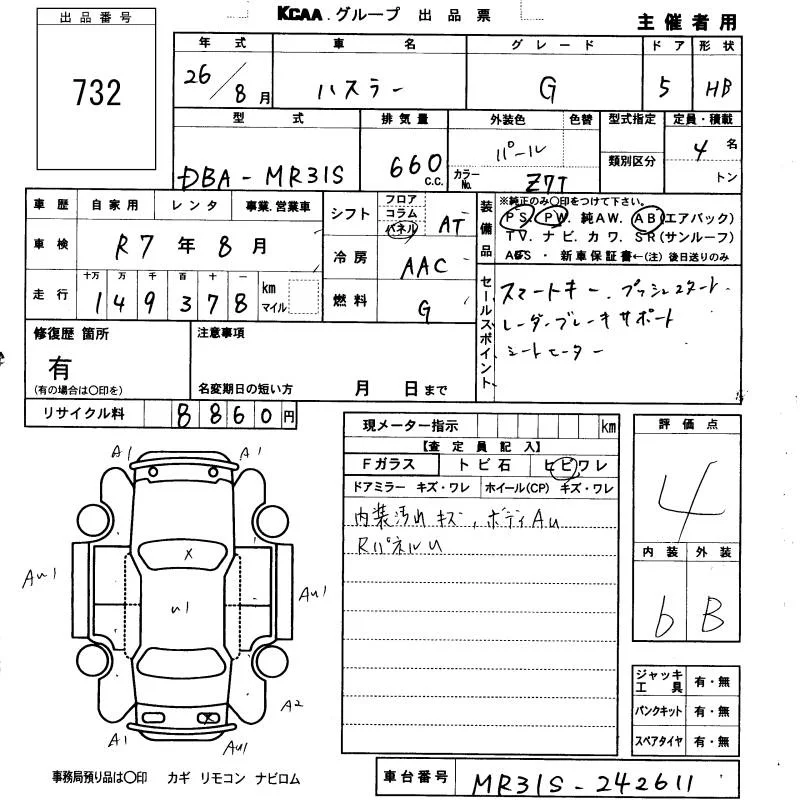 出品番号
732
KCAA.グループ 出品票
主催者用
年式 車名 グレード ドア 形状
26/8月 ハスラー G 5 HB
型式 排気量 外装色 色替 型式指定 定員・積載
DBA-MR31S 660 C.C. パール カラーNo. Z7T 類別区分 4名 トン
車歴 自家用 レンタ 事業.営業車
車検 R7年8月
走行 十万 万 千 百 十 一
149378 km マイル
シフト フロア コラム パネル AT
冷房 AAC
燃料 G
装備品
※純正のみ〇印をつけて下さい。
PS. PW. 純AW. AB(エアバック)
TV. ナビ. カワ. SR(サンルーフ)
ABS・新車保証書←(注)後日送りのみ
セールスポイント
スマートキー、プッシュスタート
レーダーブレーキサポート
シートヒーター
修復歴 箇所
有
(有の場合は〇印を)
注意事項
名変期日の短い方 月 日まで
リサイクル料 8860円
現メーター指示 km
【査定員記入】
Fガラス トビ石 ヒビワレ
ドアミラー キズ・ワレ ホイール(CP) キズ・ワレ
内装汚れキズ、ボディAU
RパネルU
評価点
4
内装 外装
b B
A1 A1
AU1 X U1 AU1
A2
X
A1 AU1
ジャッキ工具 有・無
パンクキット 有・無
スペアタイヤ 有・無
事務局預り品は〇印 カギ リモコン ナビロム
車台番号 MR31S-242611